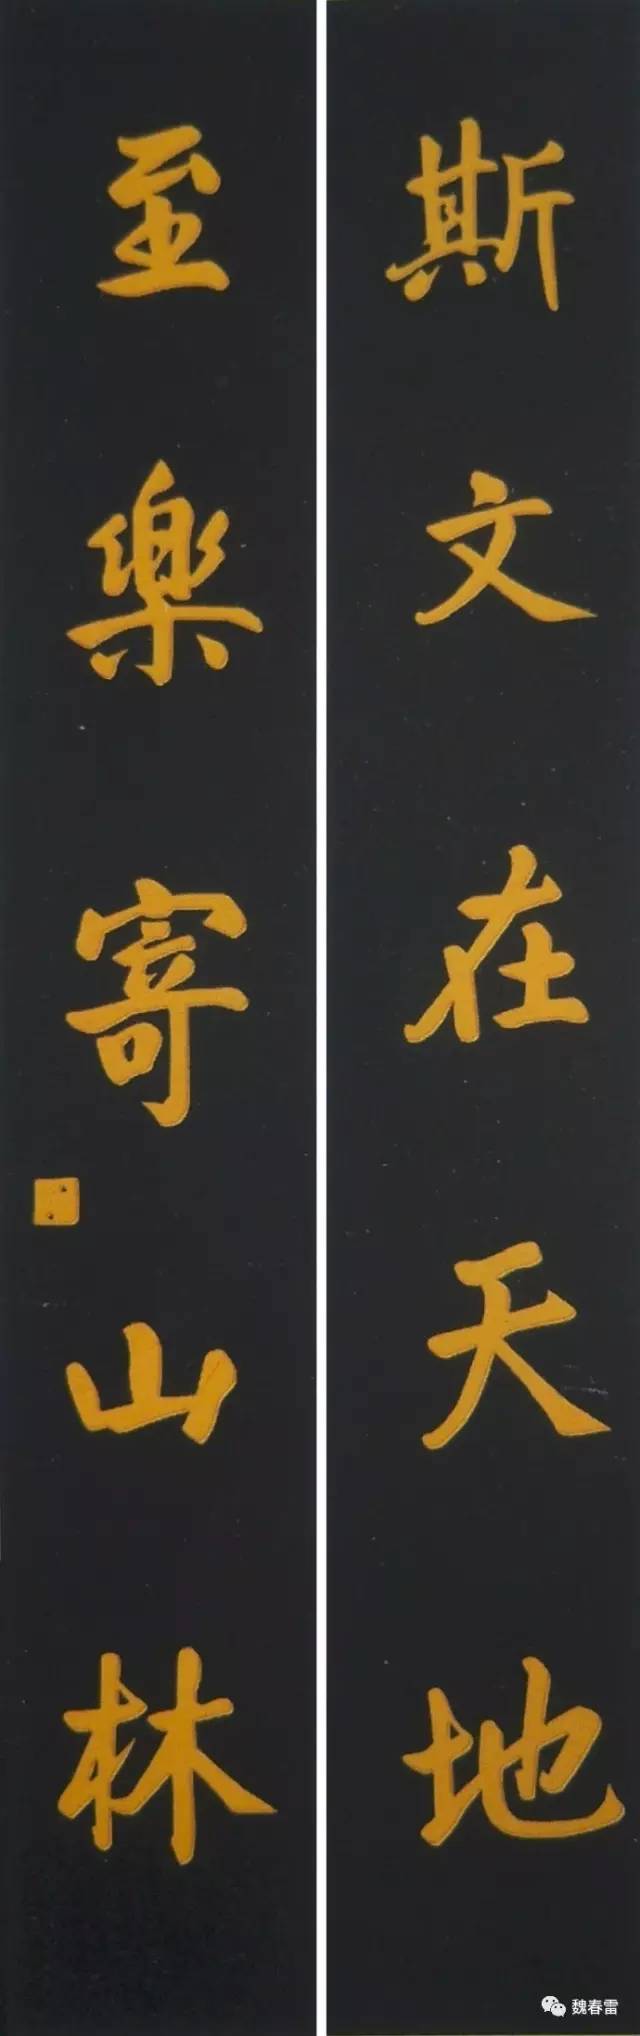 斯文在天地
至樂寄山林
魏春雷